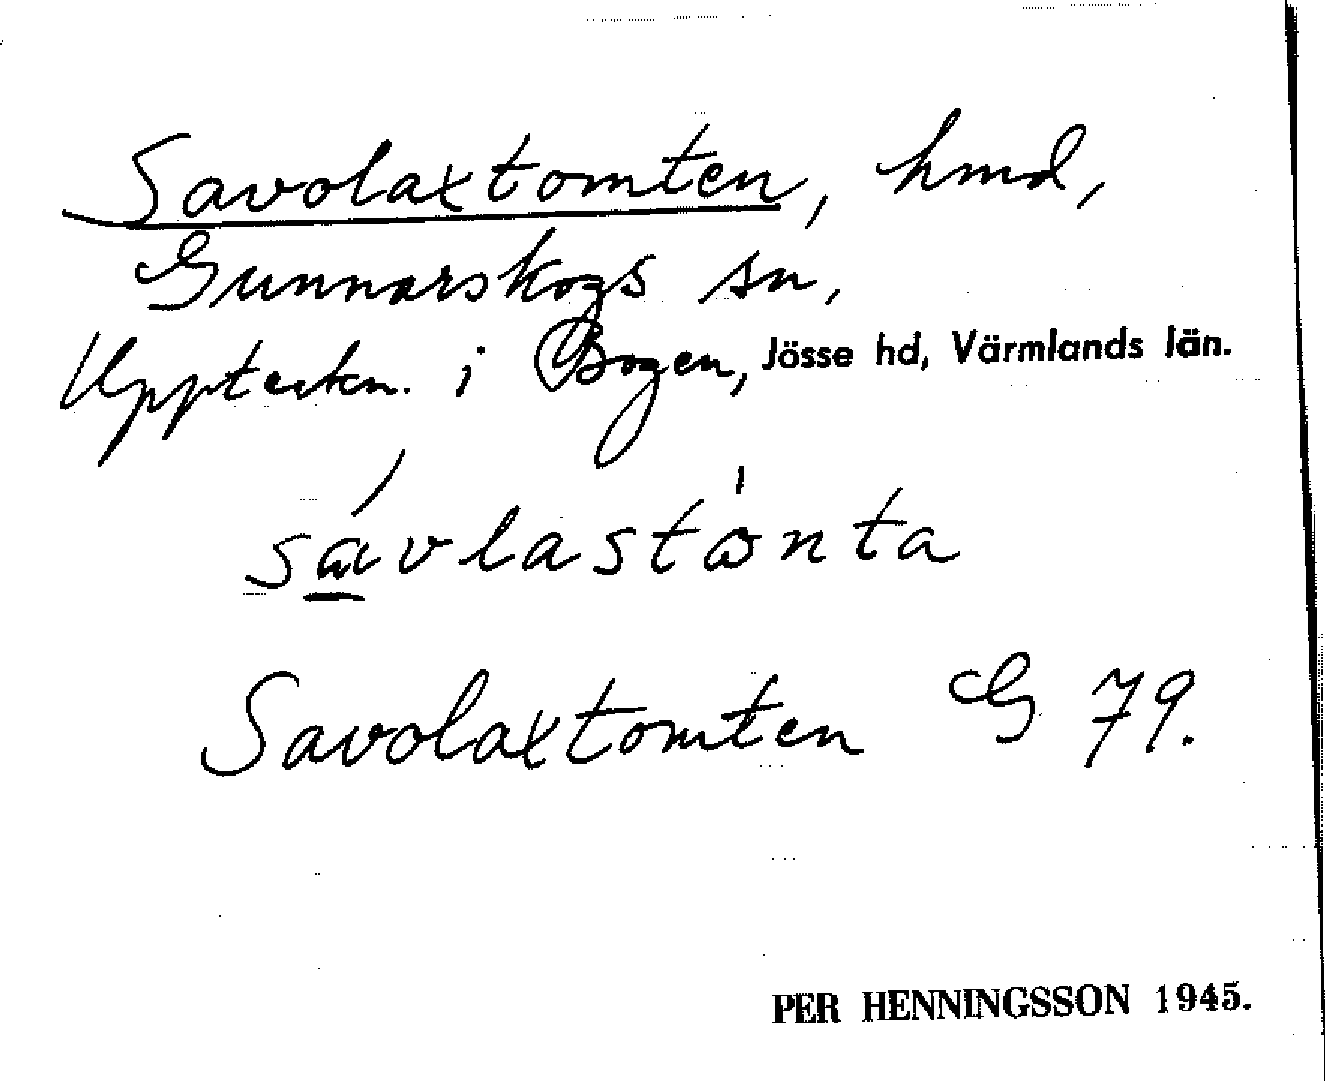 Savolaxtomten, hmd,
Gunnarskogs sn,
Uppteckn. i Bogen, Jösse hd, Värmlands län.
savlastònta
Savolaxtomten G 79.
PER HENNINGSSON 1945.